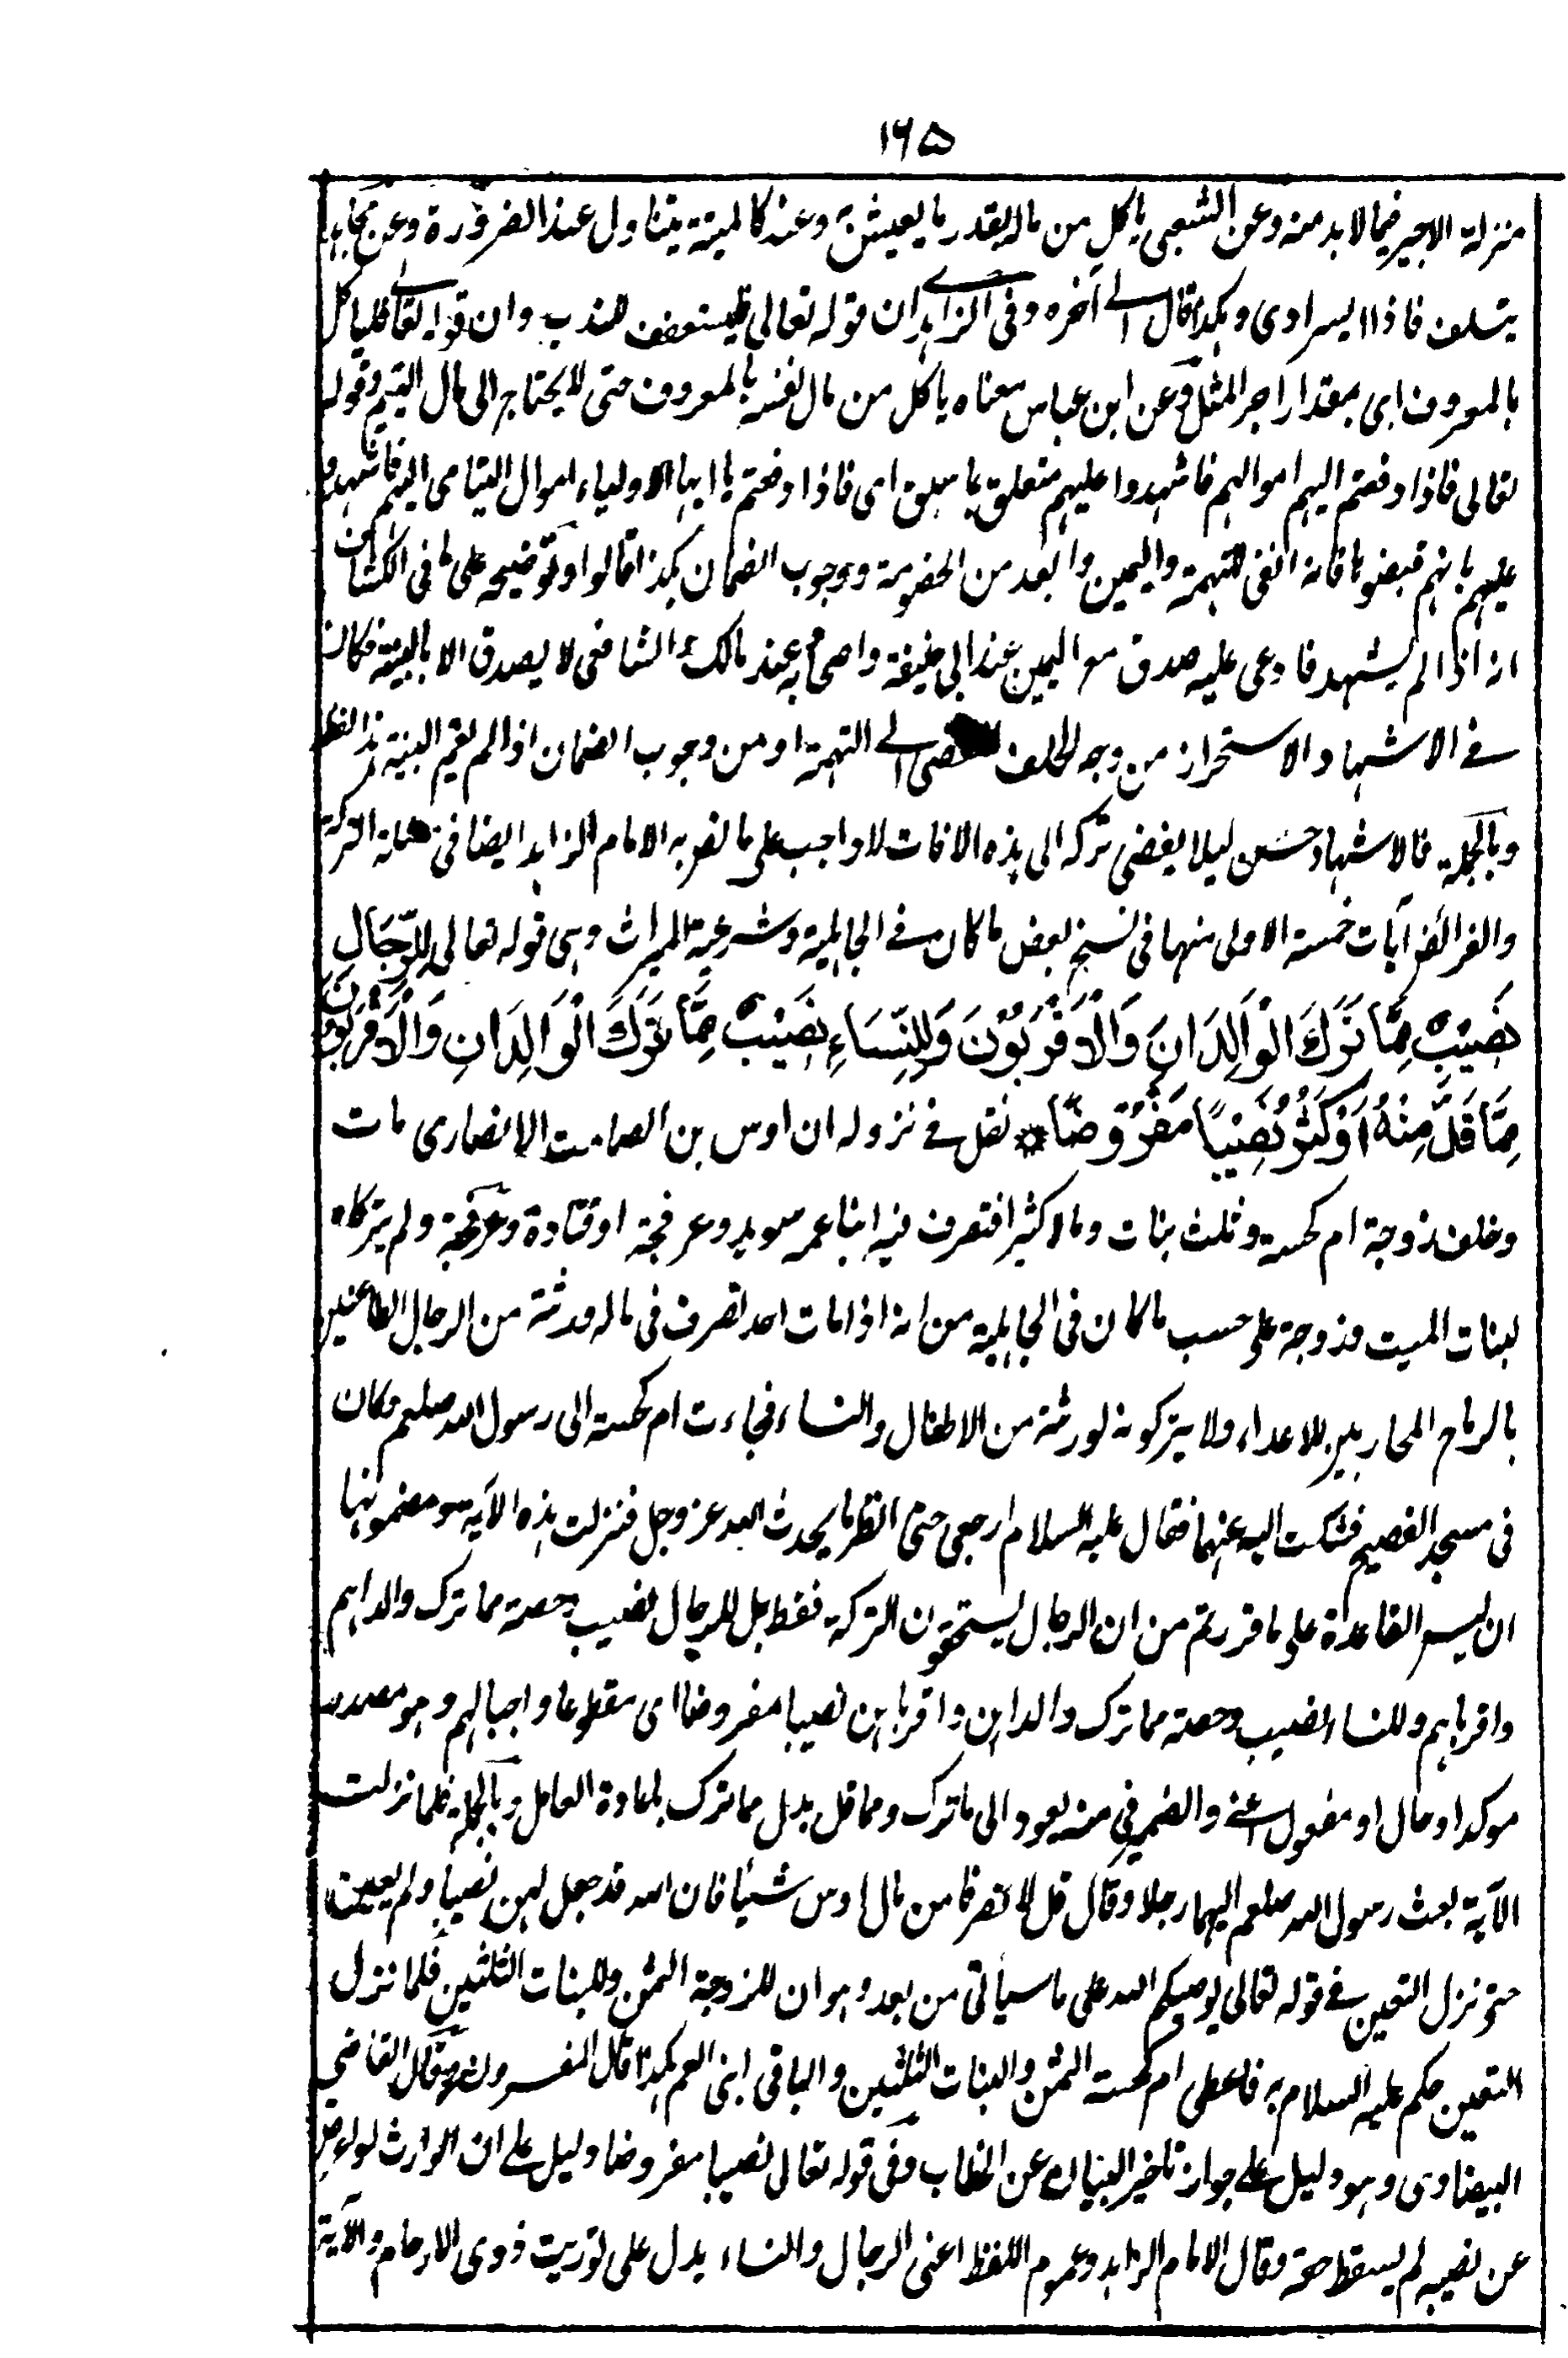 ۱۶۵
منزلة الاجير فيما لا بد منه وعن الشعبى ياكل من ماله بقدر ما يعيش به وعنه كالميتة يتناول عند الضرورة وعن مجاهد
يتسلف فاذا ايسر ادى وهكذا قال الى آخره وفى الزاهدى ان قوله تعالى فليستعفف للندب وان قوله تعالى فلياكل
بالمعروف اى بمقدار اجر المثل وعن ابن عباس معناه ياكل من مال نفسه بالمعروف حتى لا يحتاج الى مال اليتيم وقوله
تعالى فاذا دفعتم اليهم اموالهم فاشهدوا عليهم متعلق بما سبق اى فاذا دفعتم يا ايها الاولياء اموال اليتامى اليهم فاشهدوا
عليهم بانهم قبضوها فانه انفى للتهمة واليمين وابعد من الخصومة ووجوب الضمان هكذا قالوا وتوضيحه على ما فى الكشاف
انه اذا لم يشهد فادعى عليه صدق مع اليمين عند ابى حنيفة واصحابه وعند مالك والشافعى لا يصدق الا بالبينة فكان
فى الاشهاد الاستحراز من وجه الحلف المفضى الى التهمة او من وجوب الضمان اذا لم يقم البينة هذا لفظه
وبالجملة فالاشهاد حسن ليلا يفضى تركه الى هذه الافات لا واجب على ما نص به الامام الزاهد ايضا فى مسئلة التركة
والفرائض آيات خمسة الاولى منها فى نسخ بعض ما كان فى الجاهلية وشرعية الميراث وهى قوله تعالى لِلرِّجَالِ
نَصِيْبٌ مِّمَّا تَرَكَ الْوَالِدَانِ وَالْاَقْرَبُوْنَ وَلِلنِّسَاءِ نَصِيْبٌ مِّمَّا تَرَكَ الْوَالِدَانِ وَالْاَقْرَبُوْنَ
مِمَّا قَلَّ مِنْهُ اَوْ كَثُرَ نَصِيْبًا مَفْرُوْضًا ۞ نقل فى نزوله ان اوس بن الصامت الانصارى مات
وخلف زوجة ام كحسة وثلث بنات ومالا كثيرا فتصرف فيه ابنا عمه سويد وعرفجة او قتادة وعرفجة ولم يتركاه
لبنات الميت وزوجة على حسب ما كان فى الجاهلية من انه اذا مات احد تصرف فى ماله ورثته من الرجال الطاعنين
بالرماح المحاربين للاعداء ولا يتركونه لورثة من الاطفال والنساء فجاءت ام كحسة الى رسول الله صلعم وكان
فى مسجد الفضيح فشكت اليه عنهما فقال عليه السلام ارجعى حتى انظر ما يحدث الله عز وجل فنزلت هذه الآية ومضمونها
ان ليس القاعدة على ما قررتم من ان الرجال يستحقون التركة فقط بل للرجال نصيب وحصة مما ترك والداهم
واقرباهم وللنساء نصيب وحصة مما ترك والداهن واقرباهن نصيبا مفروضا اى مقطوعا واجبا لهم وهو مصدر
موكد او حال او مفعول اعنى والضمير فى منه يعود الى ما ترك ومما قل بدل مما ترك باعادة العامل وبالجملة فلما نزلت
الآية بعث رسول الله صلعم اليهما رجلا وقال قل لا تقرفا من مال اوس شيئا فان الله قد جعل لهن نصيبا ولم يعين
حتى نزل التعين فى قوله تعالى يوصيكم الله على ما سيأتى من بعد وهو ان للزوجة الثمن وللبنات الثلثين فلما نزل
التعين حكم عليه السلام به فاعطى ام كحسة الثمن والبنات الثلثين والباقى ابنى العم هكذا قال المفسرون وقال القاضى
البيضاوى وهو دليل على جواز تاخير البيان عن الخطاب وفى قوله تعالى نصيبا مفروضا دليل على ان الوارث لو اعرض
عن نصيبه لم يسقط حقه وقال الامام الزاهد وعموم اللفظ اعنى الرجال والنساء يدل على توريث ذوى الارحام والآية